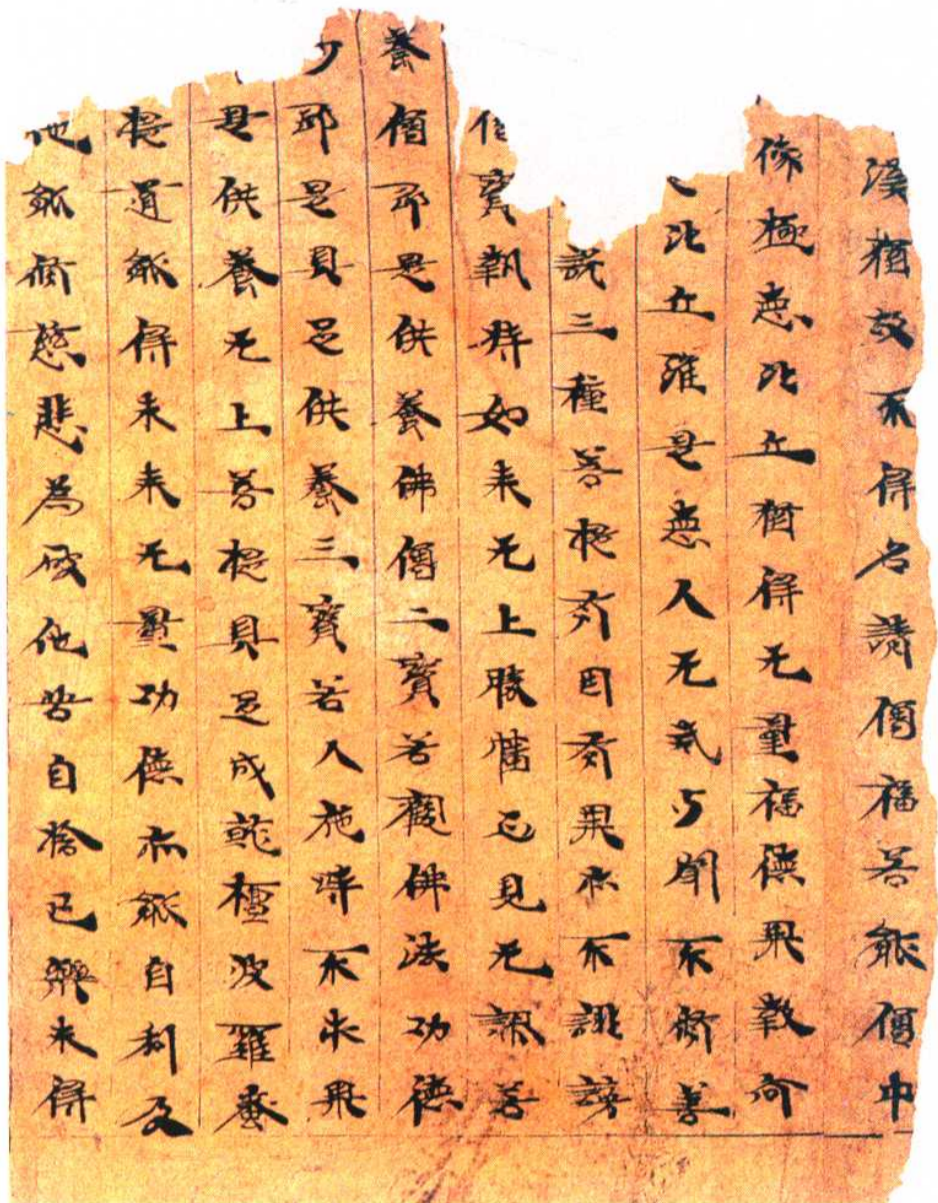 漢猶故不得名請僧福若能僧中
像極惡比丘猶得无量福德果報何
比丘雖是惡人无戒少聞不修善
說三種菩提有因有果亦不誹謗
寶執持如来无上勝幡正見无謬若
養僧即是供養佛僧二寶若觀佛法功德
即是具足供養三寶若人施時不求果
是供養无上菩提具足成就檀波羅蜜
提道能得未来无量功德亦能自利及
他能修慈悲為破他苦自捨己樂未得